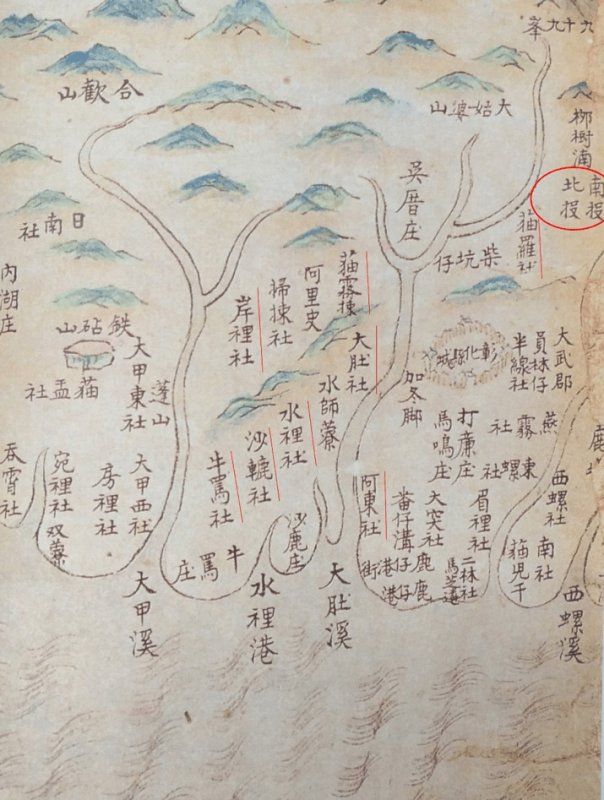 九十九峯
合歡山
大姑婆山
柳樹湳
南投
北投
吳厝庄
猫羅社
日南社
柴坑仔
猫霧捒
阿里史
掃捒社
岸裡社
內湖庄
鉄砧山
大肚社
彰化縣城
大武郡
員林仔
半線社
大甲東社
猫盂社
蓬山
水師藔
加冬脚
水裡社
沙轆社
牛罵社
打廉庄
馬鳴庄
燕霧社
東螺社
西螺社
吞霄社
宛裡社
双藔
房裡社
大甲西社
阿東社
番仔溝
大突社
眉裡社
南社
猫児干
沙鹿庄
牛罵庄
鹿仔港
鹿仔港街
二林社
馬芝遴
大甲溪
水裡港
大肚溪
西螺溪